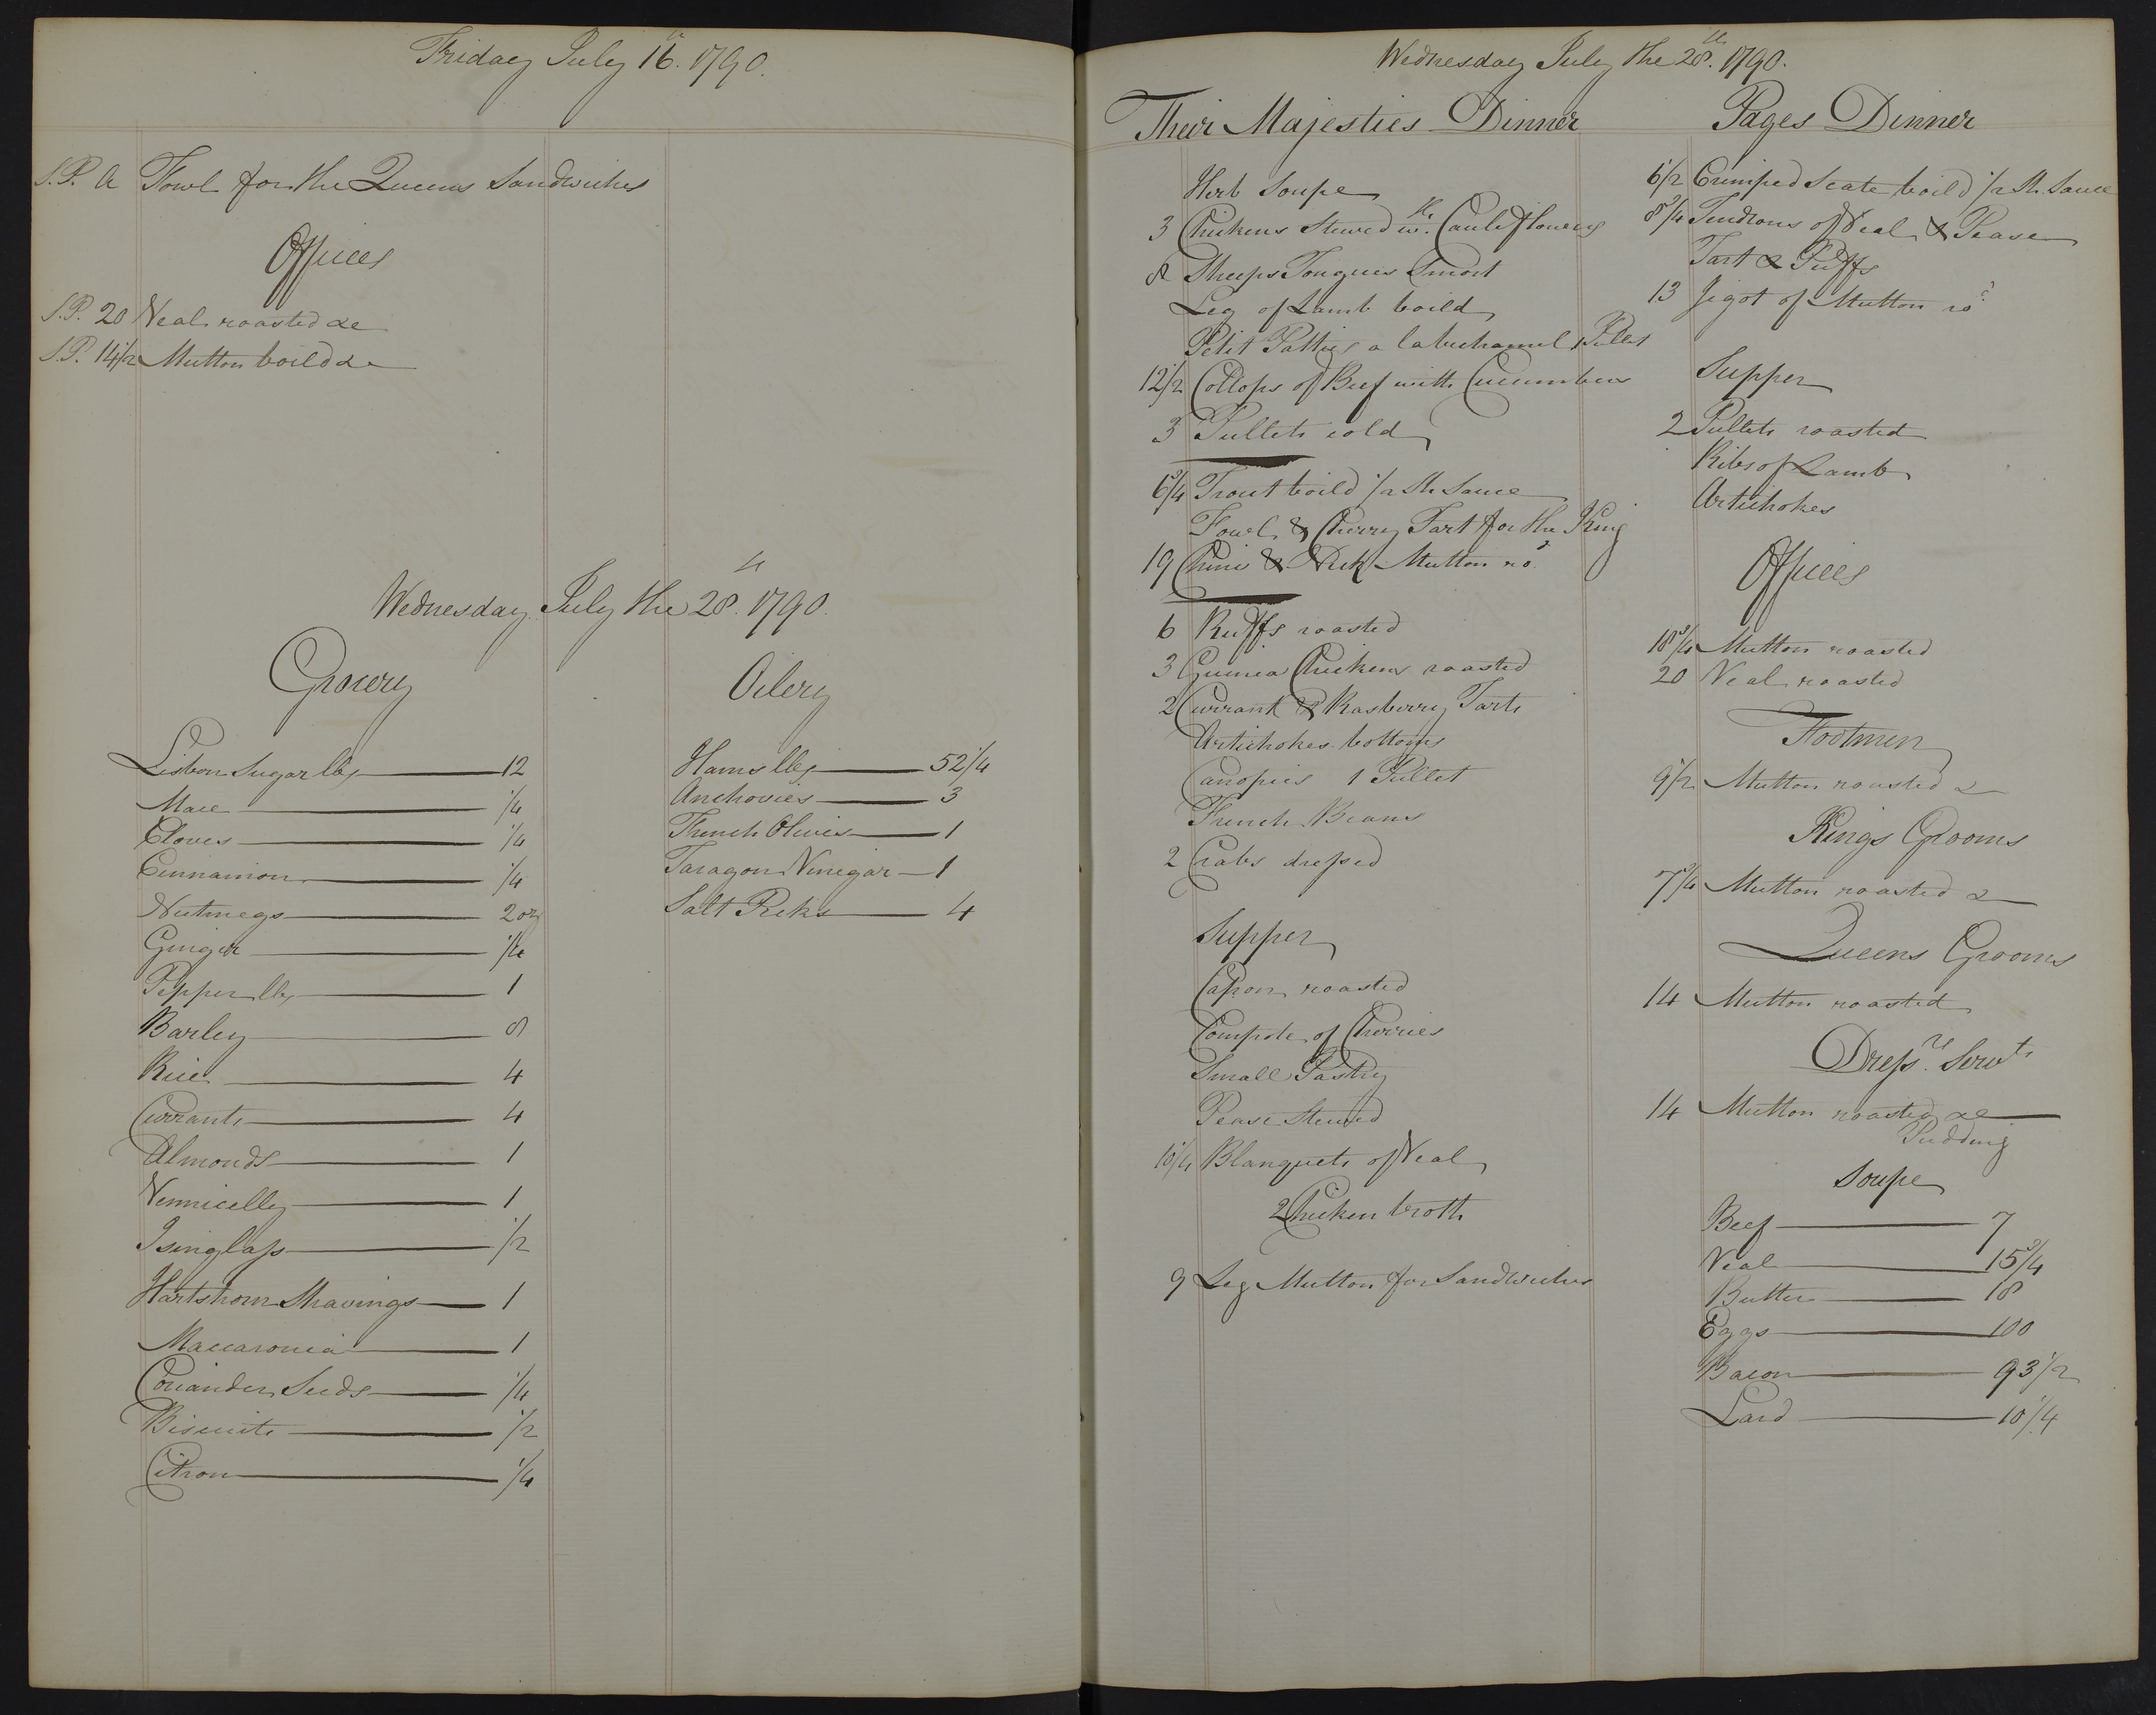 Friday July 16th. 1790.
S.P. A Fowl for the Queens Sandwiches
Offices
S.P. 20 Veal roasted &c
S.P. 14 1/2 Mutton boild &c
Wednesday July the 28th. 1790.
Grocery
Lisbon Sugar lbs 12
Mace 1/4
Cloves 1/4
Cinnamon 1/4
Nutmegs 2 oz
Ginger 1/4
Pepper lbs 1
Barley 8
Rice 4
Currants 4
Almonds 1
Vermicelly 1
Isinglass 1/2
Hartshorn Shavings 1
Maccaronia 1
Coriander Seeds 1/4
Biscuits 1/2
Citron 1/4
Oilery
Hams lbs 52 1/4
Anchovies 3
French Olives 1
Taragon Vinegar 1
Salt Peke 4
Wednesday July the 28th. 1790.
Their Majesties Dinner
Herb Soupe
3 Chickens Stewed wth. Cauleflowers
8 Sheeps Tongues Smort
Leg of Lamb boild
Petit Patties a labechamel 1 Pullet
12 1/2 Collops of Beef with Cucumbers
3 Pullets cold
6 3/4 Trout boild 1/2 Sh. Sauce
Fowl & Cherry Tart for the King
19 Chine & Neck Mutton rod
6 Ruffs roasted
3 Guinea Chickens roasted
2 Currant & Rasberry Tarts
Artichokes bottoms
Canopies 1 Pullet
French Beans
2 Crabs dressed
Supper
Capon roasted
Compote of Cherries
Small Pastry
Pease Stewed
10 1/4 Blanquets of Veal
2 Chicken broth
9 Leg Mutton for Sandwiches
Pages Dinner
6 1/2 Crimped Scate boild 1/2 Sh. Sauce
8 3/4 Tendrons of Veal & Pease
Tart & Puffs
13 Jigot of Mutton rod
Supper
2 Pullets roasted
Ribs of Lamb
Artichokes
Offices
18 3/4 Mutton roasted
20 Veal roasted
Footmen
9 1/2 Mutton roasted &
Kings Grooms
7 3/4 Mutton roasted &
Queens Grooms
14 Mutton roasted
Dressrs. Servts
14 Mutton roasted &c
Pudding
Soupe
Beef 7
Veal 15 3/4
Butter 18
Eggs 100
Bacon 93 1/2
Lard 10 1/4